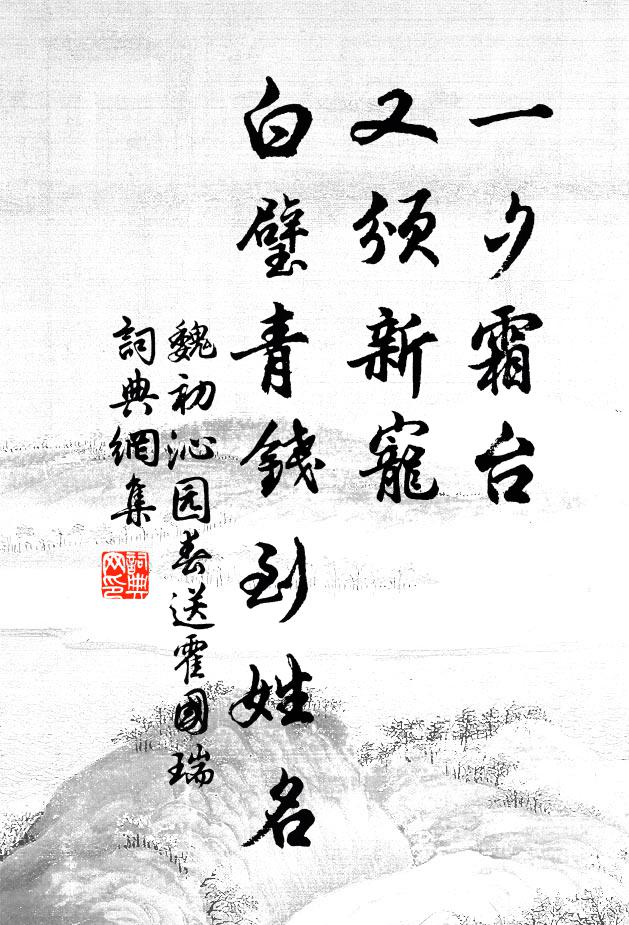 一夕霜台
又颁新寵
白璧青錢到姓名
魏初沁园春送霍國瑞
詞典網集
詞典网印